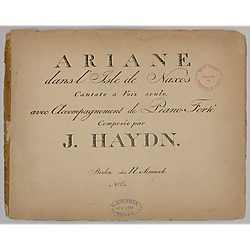 ARIANE
dans l'Isle de Naxos
Cantate a Voix seule,
avec Accompagnement de Piano-Forte
Composée par
J. HAYDN.
Berlin chez N. Simrock